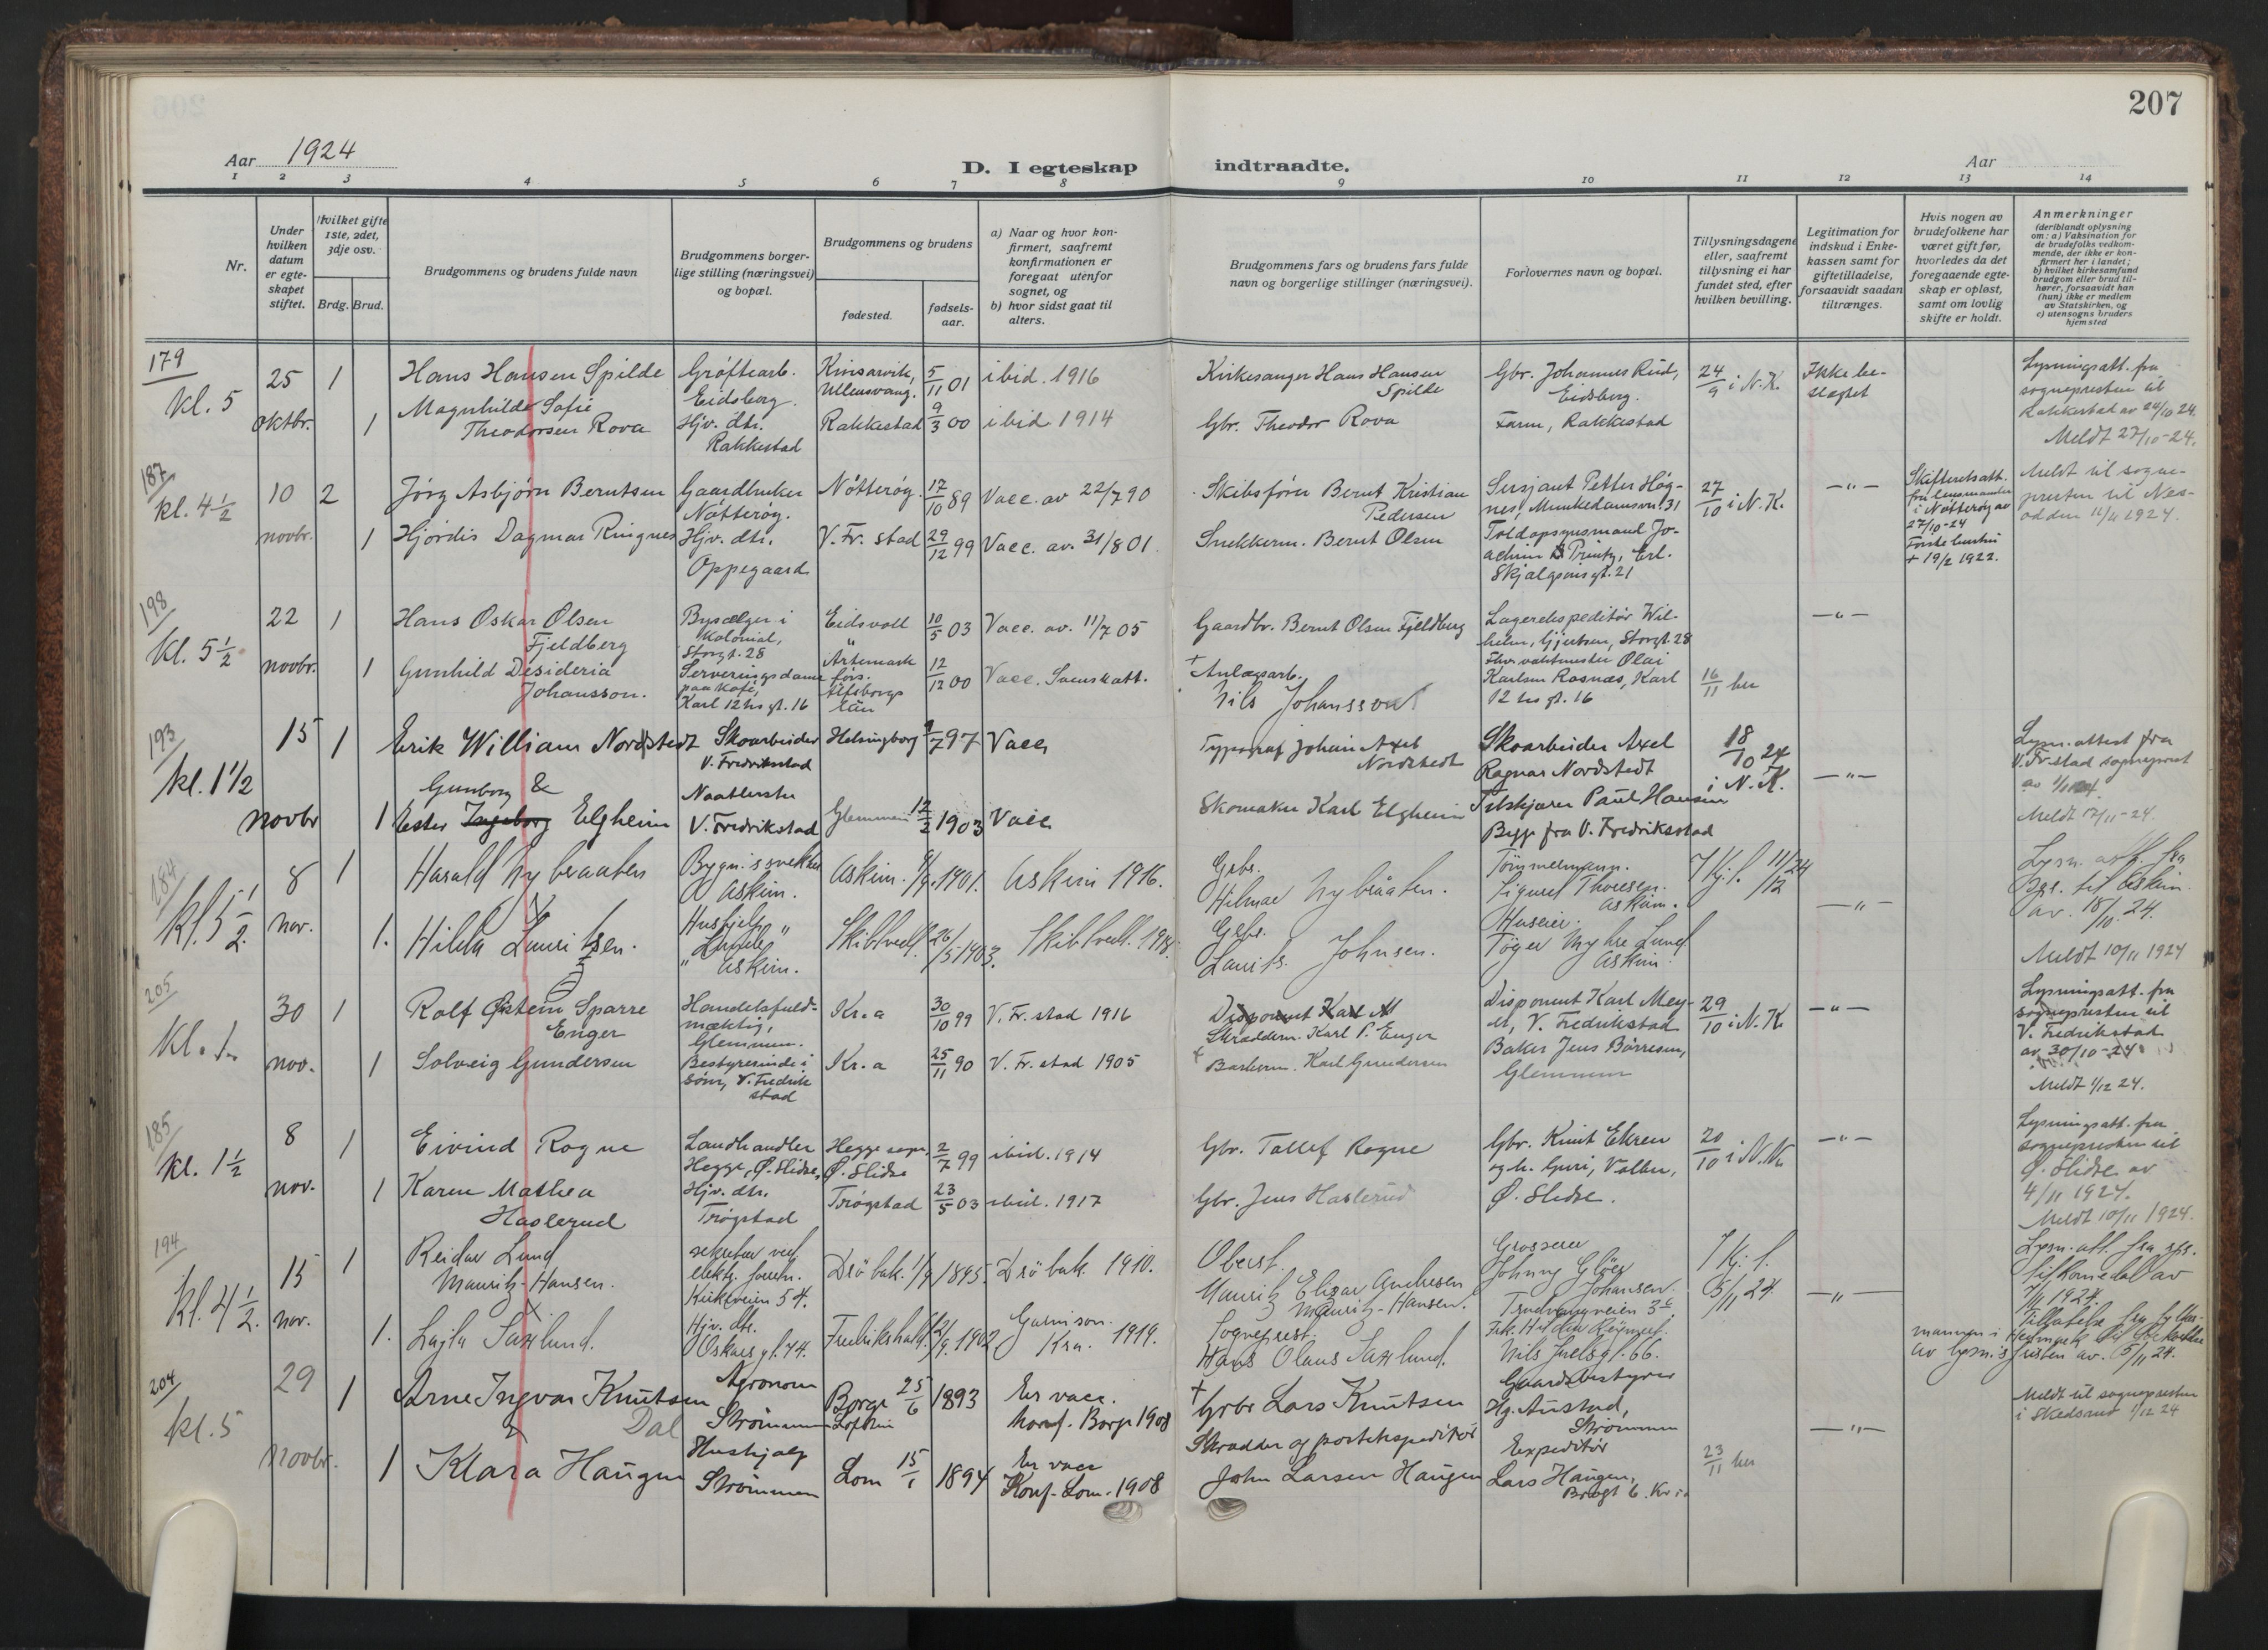 207
Aar 1924
D. I egteskap indtraadte.
Aar
1 2 3 4 5 6 7 8 9 10 11 12 13 14
Nr.
Under hvilken datum er egteskapet stiftet.
Hvilket gifte 1ste, 2det, 3dje osv.
Brdg. Brud.
Brudgommens og brudens fulde navn
Brudgommens borgerlige stilling (næringsvei) og bopæl.
Brudgommens og brudens
fødested.
fødselsaar.
a) Naar og hvor konfirmert, saafremt konfirmationen er foregaat utenfor sognet, og
b) hvor sidst gaat til alters.
Brudgommens fars og brudens fars fulde navn og borgerlige stillinger (næringsvei).
Forlovernes navn og bopæl.
Tillysningsdagene eller, saafremt tillysning ei har fundet sted, efter hvilken bevilling.
Legitimation for indskud i Enkekassen samt for giftetilladelse, forsaavidt saadan tiltrænges.
Hvis nogen av brudefolkene har været gift før, hvorledes da det foregaaende egteskap er opløst, samt om lovlig skifte er holdt.
Anmerkninger (deriblandt oplysning om: a) Vaksination for de brudefolks vedkommende, der ikke er konfirmert her i landet; b) hvilket kirkesamfund brudgom eller brud tilhører, forsaavidt han (hun) ikke er medlem av Statskirken, og c) utensogns bruders hjemsted
179
kl. 5
25 oktbr.
1
Hans Hansen Spilde
Grøftearb. Eidsberg.
Kinsarvik, Ullensvang.
5/11 01
ibid. 1916
Kirkesanger Hans Hansen Spilde
Gbr. Johannes Rud, Eidsberg.
24/9 i N.K.
Ikke beslegtet
Lysningsatt. fra sognepresten til Rakkestad av 24/10 24.
Meldt 27/10-24.
1
Magnhilde Sofie Theodorsen Rova
Hjv. dtr. Rakkestad
Rakkestad
9/3 00
ibid 1914
Gbr. Theodor Rova
Rakkestad
187
kl. 4 1/2
10 novbr.
2
Jørg Asbjørn Berntsen
Gaardbruker Nøtterøy.
Nøtterøy.
17/10 89
Vacc. av 22/7 90
Skibsfører Bernt Kristian Pedersen
Sersjant Petter Høgnes, Munkedamsvn. 31
27/10 i N.K.
—"—
Skifteretsatt. fra lensmanden i Nøtterøy av 27/10-24
Første hustru + 19/2 1922.
Meldt til sognepresten til Nesodden 11/11 1924.
1
Hjørdis Dagmar Ringnes
Hjv. dtr. Oppegaard
V. Fr. stad
29/12 99
Vacc. av. 31/8 01.
Snekkerm. Bernt Olsen
Toldopsynsmand Joachim Printz, Erl. Skjalgsons gt. 21
198
kl. 5 1/2
22 novbr.
1
Hans Oskar Olsen Fjeldberg
Bysælger i kolonial, Storgt. 28
Eidsvoll
10/5 03
Vacc. av. 11/7 05
Gaardbr. Bernt Olsen Fjeldberg
Lagerekspeditør Wilhelm Gjertsen, Storgt. 28
—"—
1
Gunhild Desideria Johansson.
Serveringsdame paa kafe, Karl 12tes gt. 16
Ärtemark förs. Älfsborgs län
12/12 00
Vacc. Svensk att.
+ Anlægsarb. Nils Johansson
Fhv. vaktmester Olai Karlsen Rosnæs, Karl 12tes gt. 16
16/11 her
193
kl. 1 1/2
15 novbr
1
Erik William Nordstedt
Skoarbeider V. Fredriksstad
Helsingborg
9/7 97
Vacc
Typograf Johan Axel Nordstedt
Skoarbeider Axel Ragnar Nordstedt
18/10 24 i N.K.
—"—
Lysn. attest fra V. Fr.stad sogneprest
Meldt 17/11-24.
& Gunborg
1
Ester Ingeborg Elgheim
Naatlerske V. Fredrikstad
Glemmen
12/2 1903
Vacc
Skomaker Karl Elgheim
Tilskjærer Paul Hansen Bygg fra V. Fredriksstad
184
kl. 5 1/2.
8 nov.
1
Harald Nybraaten
Askim.
Askim.
1901.
Askim 1916.
Gbr. Hilmar Nybråten.
Tømmermann. Sigurd Thoresen. Askim.
11/12 24
—"—
Lysn. att. fra Spr. til Askim av. 18/10. 24.
Meldt 10/11 1924
1.
Hilda Lauritsen.
Hushjelp Askim.
Skibtvedt.
26/5 1903.
Skibtvedt. 1918.
Gbr. Laurits. Johnsen.
Huseier. Tøger Myhre Lund Askim.
205
Kl. 1.
30 nov.
1
Rolf Østein Sparre Enger
Handelsfuldmæktig, Glemmen.
Kr.a
30/10 99
V. Fr. stad 1916
Disponent Karl M
Skræddern. Karl P. Enger
Disponent Karl Meyer, V. Fredrikstad
29/10 i N.K
—"—
Lysningsatt. fra sognepresten til V. Fredrikstad av 30/10-24
Meldt 1/12 24.
1
Solveig Gundersen
Bestyrerinde i søm, V. Fredrikstad
Kr.a
25/11 90
V. Fr. stad 1905
Karl Gundersen
Baker Jens Børresen, Glemmen
185
kl. 1 1/2
8 nov.
1
Eivind Rogne
Landhandler Hegge, Ø. Slidre,
Hegge sogn, Ø. Slidre
2/7 99
ibid. 1914
Gbr. Tollef Rogne
Gbr. Knut Ekren og h. Guri, Volbu, Ø. Slidre.
20/10 i N.K.
—"—
Lysningsatt. fra sognepresten til Ø. Slidre av 4/11 1924.
Meldt 10/11 1924.
1
Karen Mathea Haslerud
Hjv. dtr. Trøgstad
Trøgstad
23/5 03
ibid. 1917
Gbr. Jens Haslerud
194
kl. 4 1/2.
15 nov.
1
Reidar Lund Mauritz-Hansen.
sekretær ved elektr. foretn. Kirkeveien 54.
Drøbak.
1/9 1895.
Drøbak 1910.
Oberst. Mauritz Elizar Andresen Mauritz-Hansen.
Grosserer Johnny Gløer Johansen. Trudvangveien
5/11 24
—"—
Lysn. att. fra spr. til Romedal av 7/11 1924.
Tillatelse fra fylkesmannen i Hedmark til forkortelse av lysn.sfristen av. 5/11 24.
1.
Lajla Saxlund.
Hjv. dtr. Oskars gt. 74.
Fredrikshald.
1902
Garnison. Kra. 1919.
Sogneprest. Hans Olaus Saxlund.
Nils Juelsgt. 66.
204
kl. 5
29 novbr.
1
Arne Ingvar Knutsen Dal
Agronom Strømmen
Borge Lofoten
25/6 1893
Er vacc. Konf. Borge 1908
+ Gbr Lars Knutsen
Gaardsbestyrer Hg. Austad, Strømmen
—"—
Meldt til sognepresten i Skedsmo 1/12 24
1
Klara Haugen
Hushjælp Strømmen
Lom
15/1 1894
Er vacc Konf. Lom. 1908
Skrædder og postekspeditør John Larsen Haugen
Expeditør Lars Haugen,
23/11 her